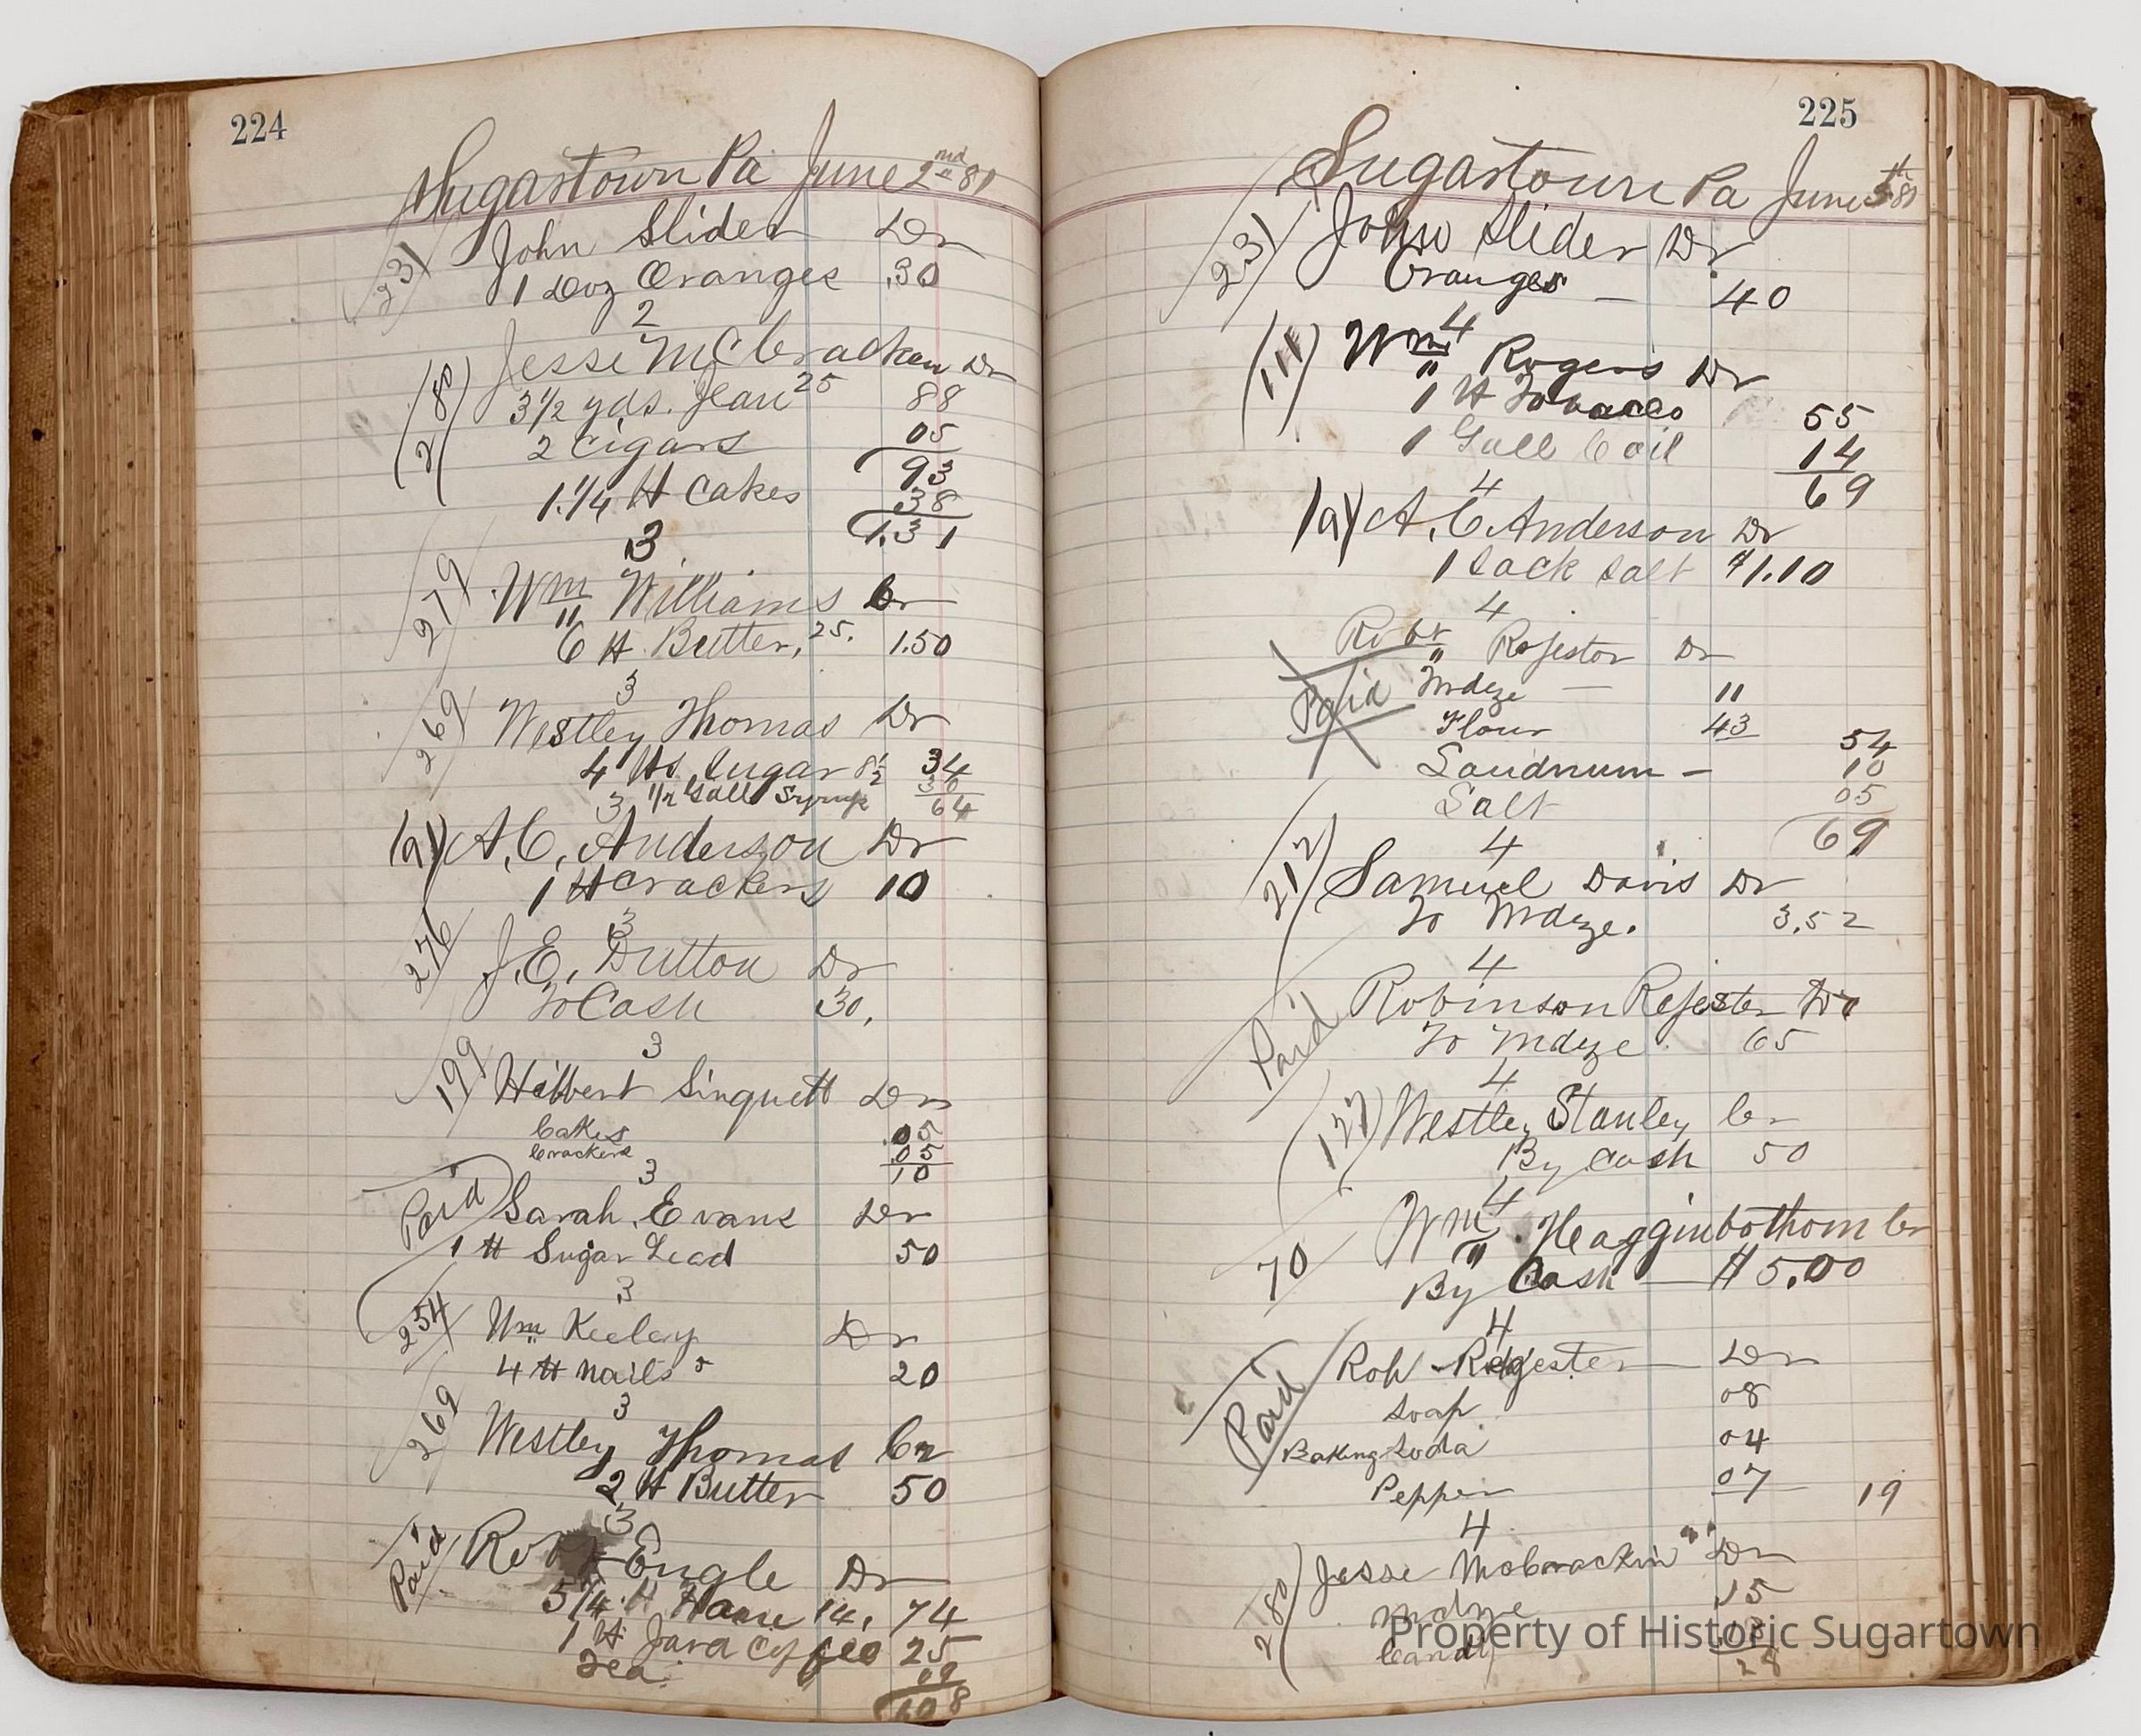 224
Sugartown Pa June 2nd 81
231 John Slider Dr
1 Doz Oranges .30
2
280 Jesse McCracken Dr
3 1/2 yds. Jean 25 88
2 Cigars 05
93
1.1/4 # Cakes 38
1.31
3
279 Wm Williams Cr
6 # Butter, 25. 1.50
3
269 Westley Thomas Dr
4 #s Sugar 8 1/2 34
1/2 Gall Syrup 30
64
3
A. C. Anderson Dr
1 # Crackers 10
3
276 J. E. Dutton Dr
To Cash 30,
3
199 Hibbert Singuett Dr
Cakes .05
Crackers .05
10
3
Paid Sarah Evans Dr
1 # Sugar Lead 50
3
254 Wm Keeley Dr
4 # Nails 5 20
3
269 Westley Thomas Cr
2 # Butter 50
3
Paid Engle Dr
5 1/4 # 14, 74
1 # Java Coffee 25
Tea 09
225
Sugartown Pa June 81
231 John Slider Dr
Oranges — 40
4
Wm Rogers Dr
1 # Tobacco 55
1 Gall C oil 14
69
4
A. C. Anderson Dr
1 Sack Salt $1.10
4
Robt Rejestor Dr
Paid Mdze — 11
Flour 43 54
Laudnum — 10
Salt 05
69
4
212 Samuel Davis Dr
To Mdze. 3.52
4
Paid Robinson Rejester Dr
To Mdze 65
4
127 Westley Stanley Cr
By Cash 50
4
70 Wm Heagginbothom Cr
By Cash — $5.00
4
Paid Rob Regester Dr
Soap 08
Baking Soda 04
Pepper 07 19
4
280 Jesse McCrackin Dr
Mdze 15
Candy 13
28
Property of Historic Sugartown